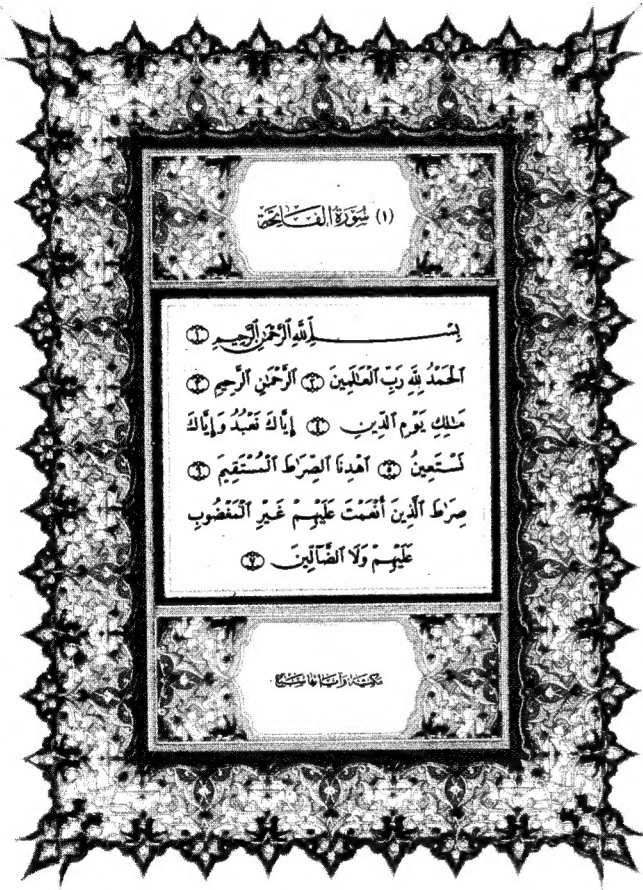 (١) سُورَةُ الْفَاتِحَةِ
بِسْمِ اللَّهِ الرَّحْمَٰنِ الرَّحِيمِ ١
الْحَمْدُ لِلَّهِ رَبِّ الْعَالَمِينَ ٢ الرَّحْمَٰنِ الرَّحِيمِ ٣
مَٰلِكِ يَوْمِ الدِّينِ ٤ إِيَّاكَ نَعْبُدُ وَإِيَّاكَ
نَسْتَعِينُ ٥ اهْدِنَا الصِّرَٰطَ الْمُسْتَقِيمَ ٦
صِرَٰطَ الَّذِينَ أَنْعَمْتَ عَلَيْهِمْ غَيْرِ الْمَغْضُوبِ
عَلَيْهِمْ وَلَا الضَّالِّينَ ٧